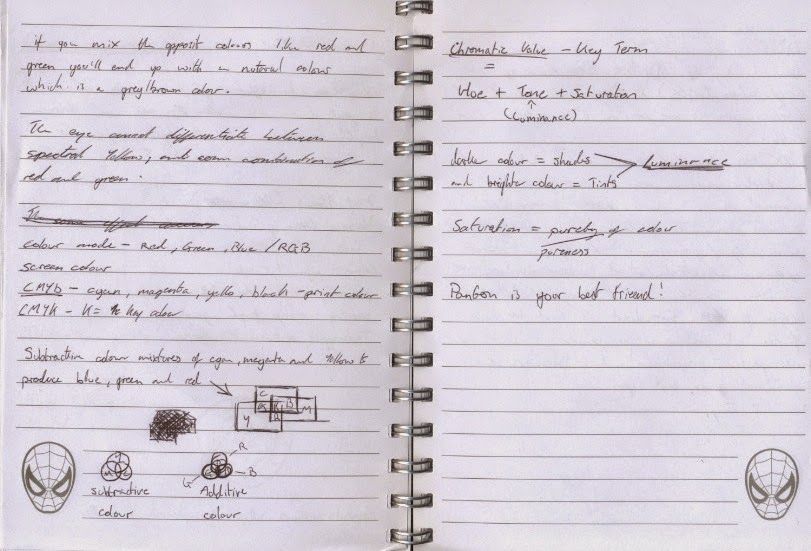 if you mix the opposit colours like red and
green you'll end up with a nutural colour
which is a grey/brown colour.
The eye cannot differentiate between
spectral yellows, and some combination of
red and green.
The same effect occurs
colour mode - Red, Green, Blue / RGB
screen colour
CMYb - cyan, magenta, yello, black - print colour
CMYK - K = Key colour
Subtractive colour mixtures of cyan, magenta and yellow to
produce blue, green and red
C
G K B M
Y R
Y
M C
R
G B
subtractive
colour
Additive
colour
Chromatic Value - Key Term
=
Hue + Tone + Saturation
(Luminance)
darker colour = shades
Luminance
and brighter colour = Tints
Saturation = purety of colour
pureness
Panton is your best friend!